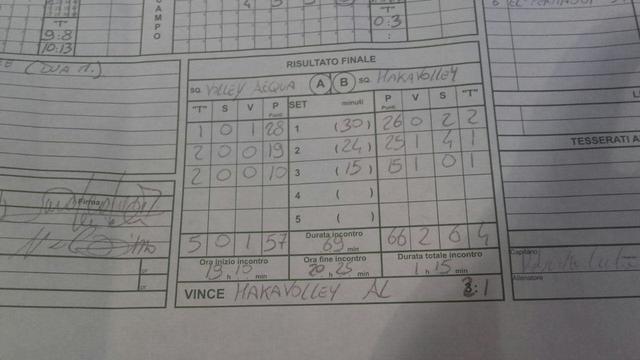 T
9:8
10:13
CAMPO
T
0:3
:
RISULTATO FINALE
SQ. VOLLEY ACQUA A B SQ. MAKAVOLLEY
"T" S V P Punti SET minuti P Punti V S "T"
1 0 1 28 1 (30) 26 0 2 2
2 0 0 19 2 (24) 25 1 4 1
2 0 0 10 3 (15) 15 1 0 1
4 ( )
5 ( )
5 0 1 57 Durata incontro 69 min 66 2 6 4
Ora inizio incontro Ora fine incontro Durata totale incontro
19 h 10 min 20 h 25 min 1 h 15 min
VINCE MAKAVOLLEY AL :1
Firma
TESSERATI A
Capitano
Allenatore